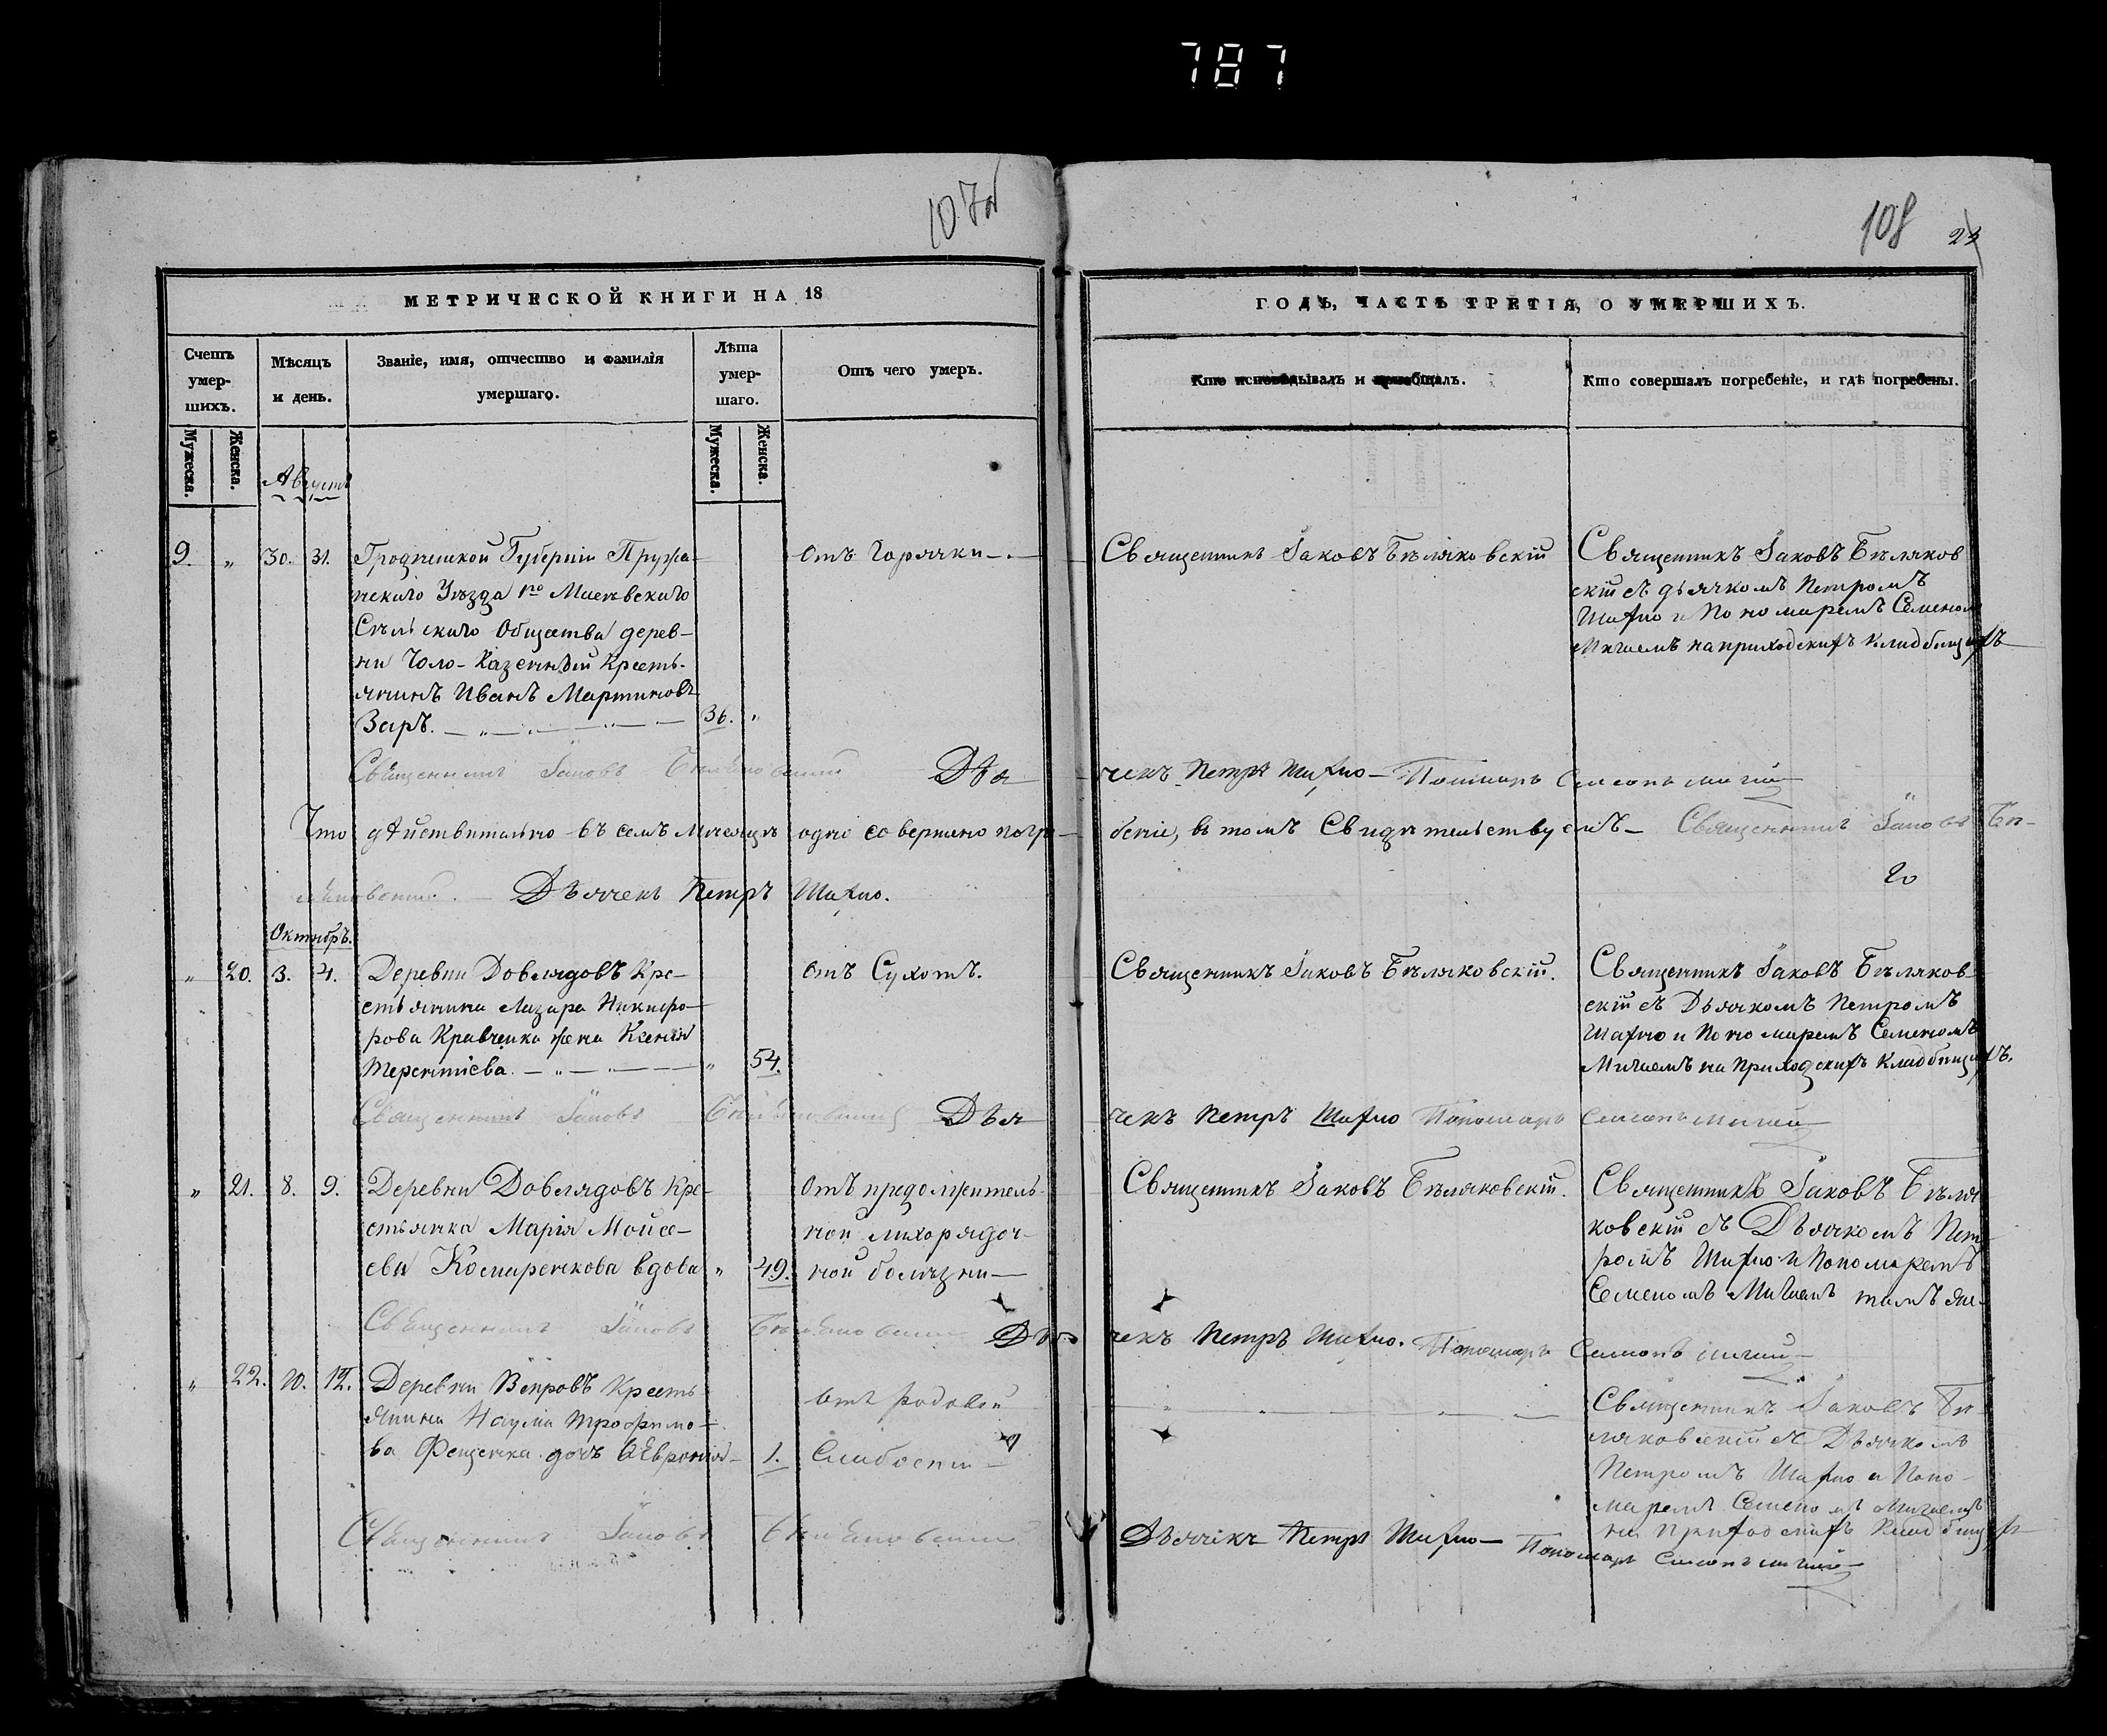 787
107об
108
23
МЕТРИЧЕСКОЙ КНИГИ НА 18
Счетъ умер-шихъ.
Мужеска.
Женска.
Мѣсяцъ и день.
Званіе, имя, отчество и фамилія умершаго.
Лѣта умер-шаго.
Мужеска.
Женска.
Отъ чего умеръ.
ГОДЪ, ЧАСТЬ ТРЕТІЯ, О УМЕРШИХЪ.
Кто исповѣдывалъ и приобщалъ.
Кто совершалъ погребеніе, и гдѣ погребены.
Августъ
9. „ 30. 31.
Гродненской Губерніи Пружа-
нскаго Уѣзда
Сельскаго Общества дерев-
ни Чоло- Казенный Кресть-
янинъ Иванъ Мартиновъ
Заръ. 36. „
Отъ Горячки
Священникъ Іаковъ Бѣляковскій
Священникъ Іаковъ Бѣляков
скій съ дьячкомъ Петромъ
Шахно и Пономаремъ Семеномъ
Мигаемъ на приходскихъ кладбищахъ
Священникъ Іаковъ Бѣляковскій Дья
чекъ Петръ Шахно Пономарь Симеонъ Мигай
Что дѣйствительно въ семъ мѣсяцѣ одно совершено погре-
беніе, въ томъ Свидѣтельствуемъ Священникъ Іаковъ Бѣ-
ляковскій. Дьячекъ Петръ Шахно.
Октябрь.
„ 20. 3. 4.
Деревни Довлядовъ Кре-
стьянина Лазара Никифо-
рова Кравченка жена Ксенія
Терентіева. „ 54.
Отъ Сухотъ.
Священникъ Іаковъ Бѣляковскій.
Священникъ Іаковъ Бѣляков
скій съ Дьячкомъ Петромъ
Шахно и Пономаремъ Семеномъ
Мигаемъ на Приходскихъ Кладбищахъ.
Священникъ Іаковъ Бѣляковскій Дья
чекъ Петръ Шахно Пономарь Симеонъ Мигай
„ 21. 8. 9.
Деревни Довлядовъ Кре-
стьянка Марія Мойсе-
ева Комаренкова вдова „ 49.
Отъ продолжитель-
ной лихорадоч-
ной болѣзни
Священникъ Іаковъ Бѣляковскій.
Священникъ Іаковъ Бѣля-
ковскій съ Дьячкомъ Пет-
ромъ Шахно и Пономаремъ
Семеномъ Мигаемъ тамъ же
Священникъ Іаковъ Бѣляковскій Дья
чекъ Петръ Шахно. Пономарь Симеонъ Мигай
„ 22. 10. 12.
Деревни Вепровъ Кресть
янина Наума Трофимо-
ва Фещенка дочь Евфронія 1.
Отъ Родовой
Слабости
Священникъ Іаковъ Бѣ-
ляковскій съ Дьячкомъ
Петромъ Шахно и Поно-
маремъ Семеномъ Мигаемъ
на приходскихъ Кладбищахъ
Священникъ Іаковъ Бѣляковскій
Дьячекъ Петръ Шахно Пономарь Симеонъ Мигай